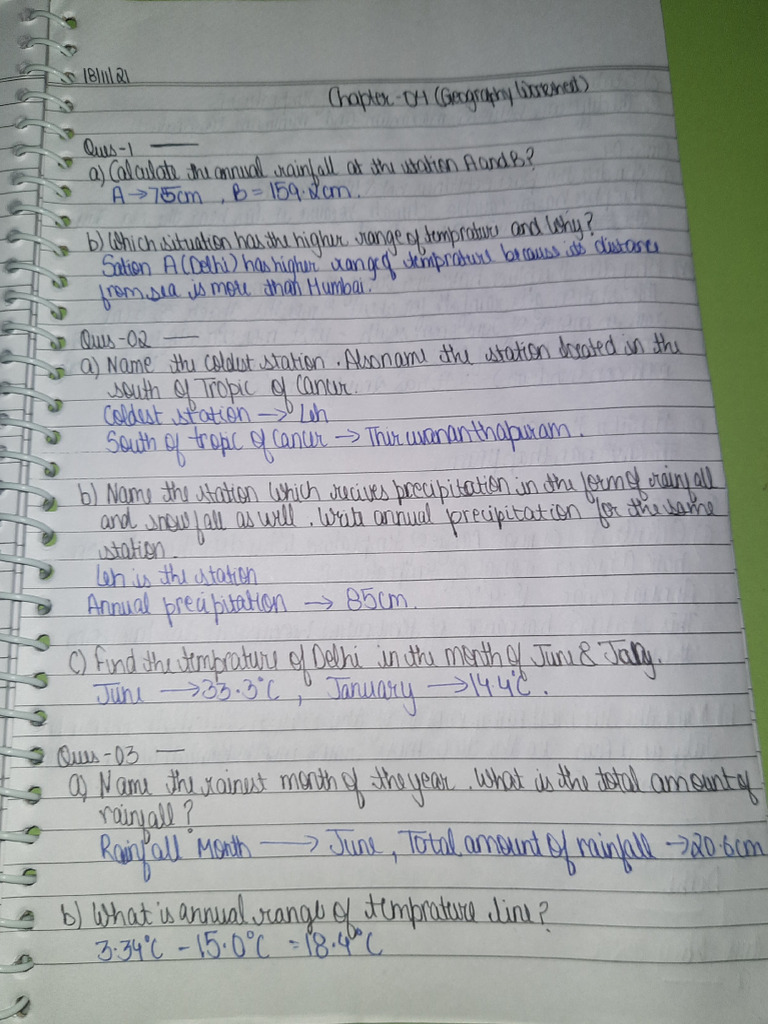 18/11/21
Chapter-04 (Geography
Ques-1
a) Calculate the annual rainfall at the station A and B?
A → 75cm , B = 159.2cm.
b) Which situation has the higher range of temprature and Why?
Sation A (Delhi) has higher range of temprature because its distance
from sea is more than Mumbai.
Ques-02
a) Name the coldest station. Also name the station located in the
south of Tropic of Cancer.
Coldest station → Leh
South of tropic of Cancer → Thiruvananthapuram.
b) Name the station which recives precipitation in the form of rainfall
and snowfall as well. Write annual precipitation for the same
station.
Leh is the station
Annual precipitation → 85cm.
c) Find the temprature of Delhi in the month of June &
June → 33.3°C , January → 14.4°C.
Ques-03
a) Name the rainest month of the year. What is the total amount of
rainfall?
Rainfall Month → June, Total amount of rainfall → 20.6cm
b) What is annual range of temprature line?
3.34°C - 15.0°C = 18.4°C